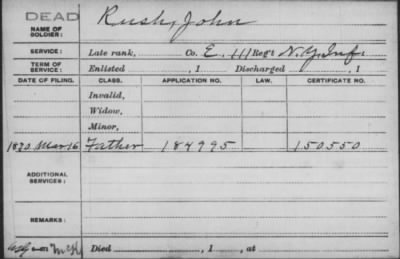 DEAD
NAME OF SOLDIER: Rush, John
SERVICE: Late rank, Co. E. 111 Reg't N.Y. Inf.
TERM OF SERVICE: Enlisted , 1 Discharged , 1
DATE OF FILING. CLASS. APPLICATION NO. LAW. CERTIFICATE NO.
Invalid,
Widow,
Minor,
1870 Mar 16 Father 184995 150550
ADDITIONAL SERVICES:
REMARKS:
Died , 1 , at